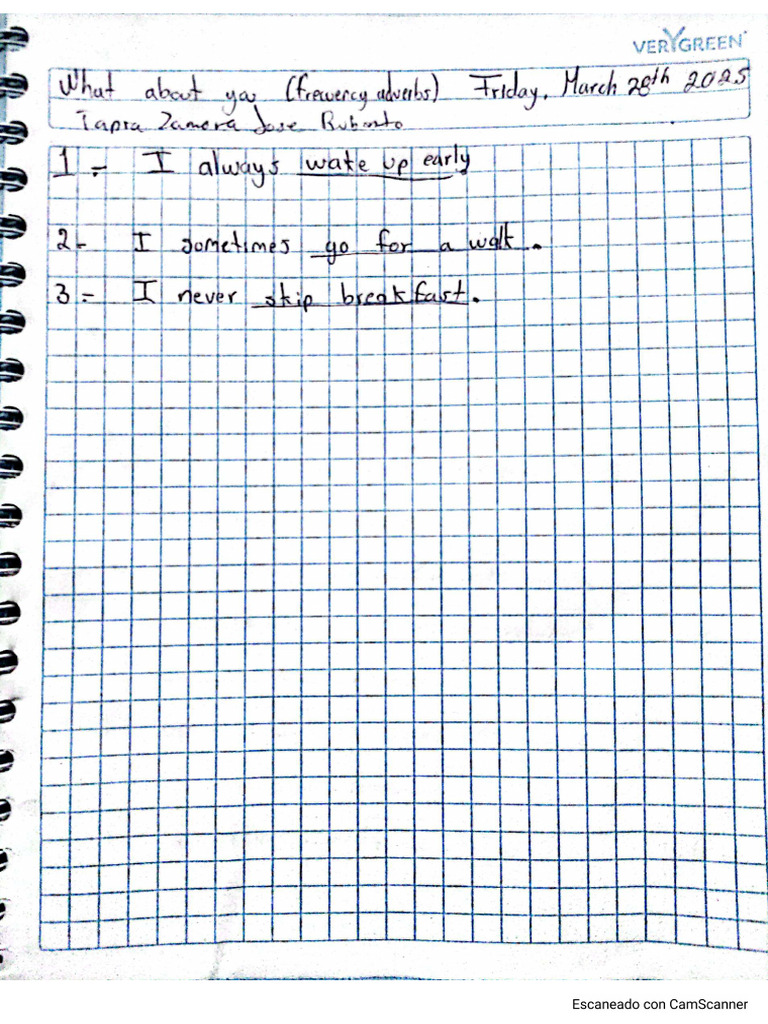 VERYGREEN
What about you (frecuency adverbs) Friday, March 28th 2025
Tapia Zamora Jose
1.- I always wake up early
2- I sometimes go for a walk.
3.- I never skip breakfast.
Escaneado con CamScanner